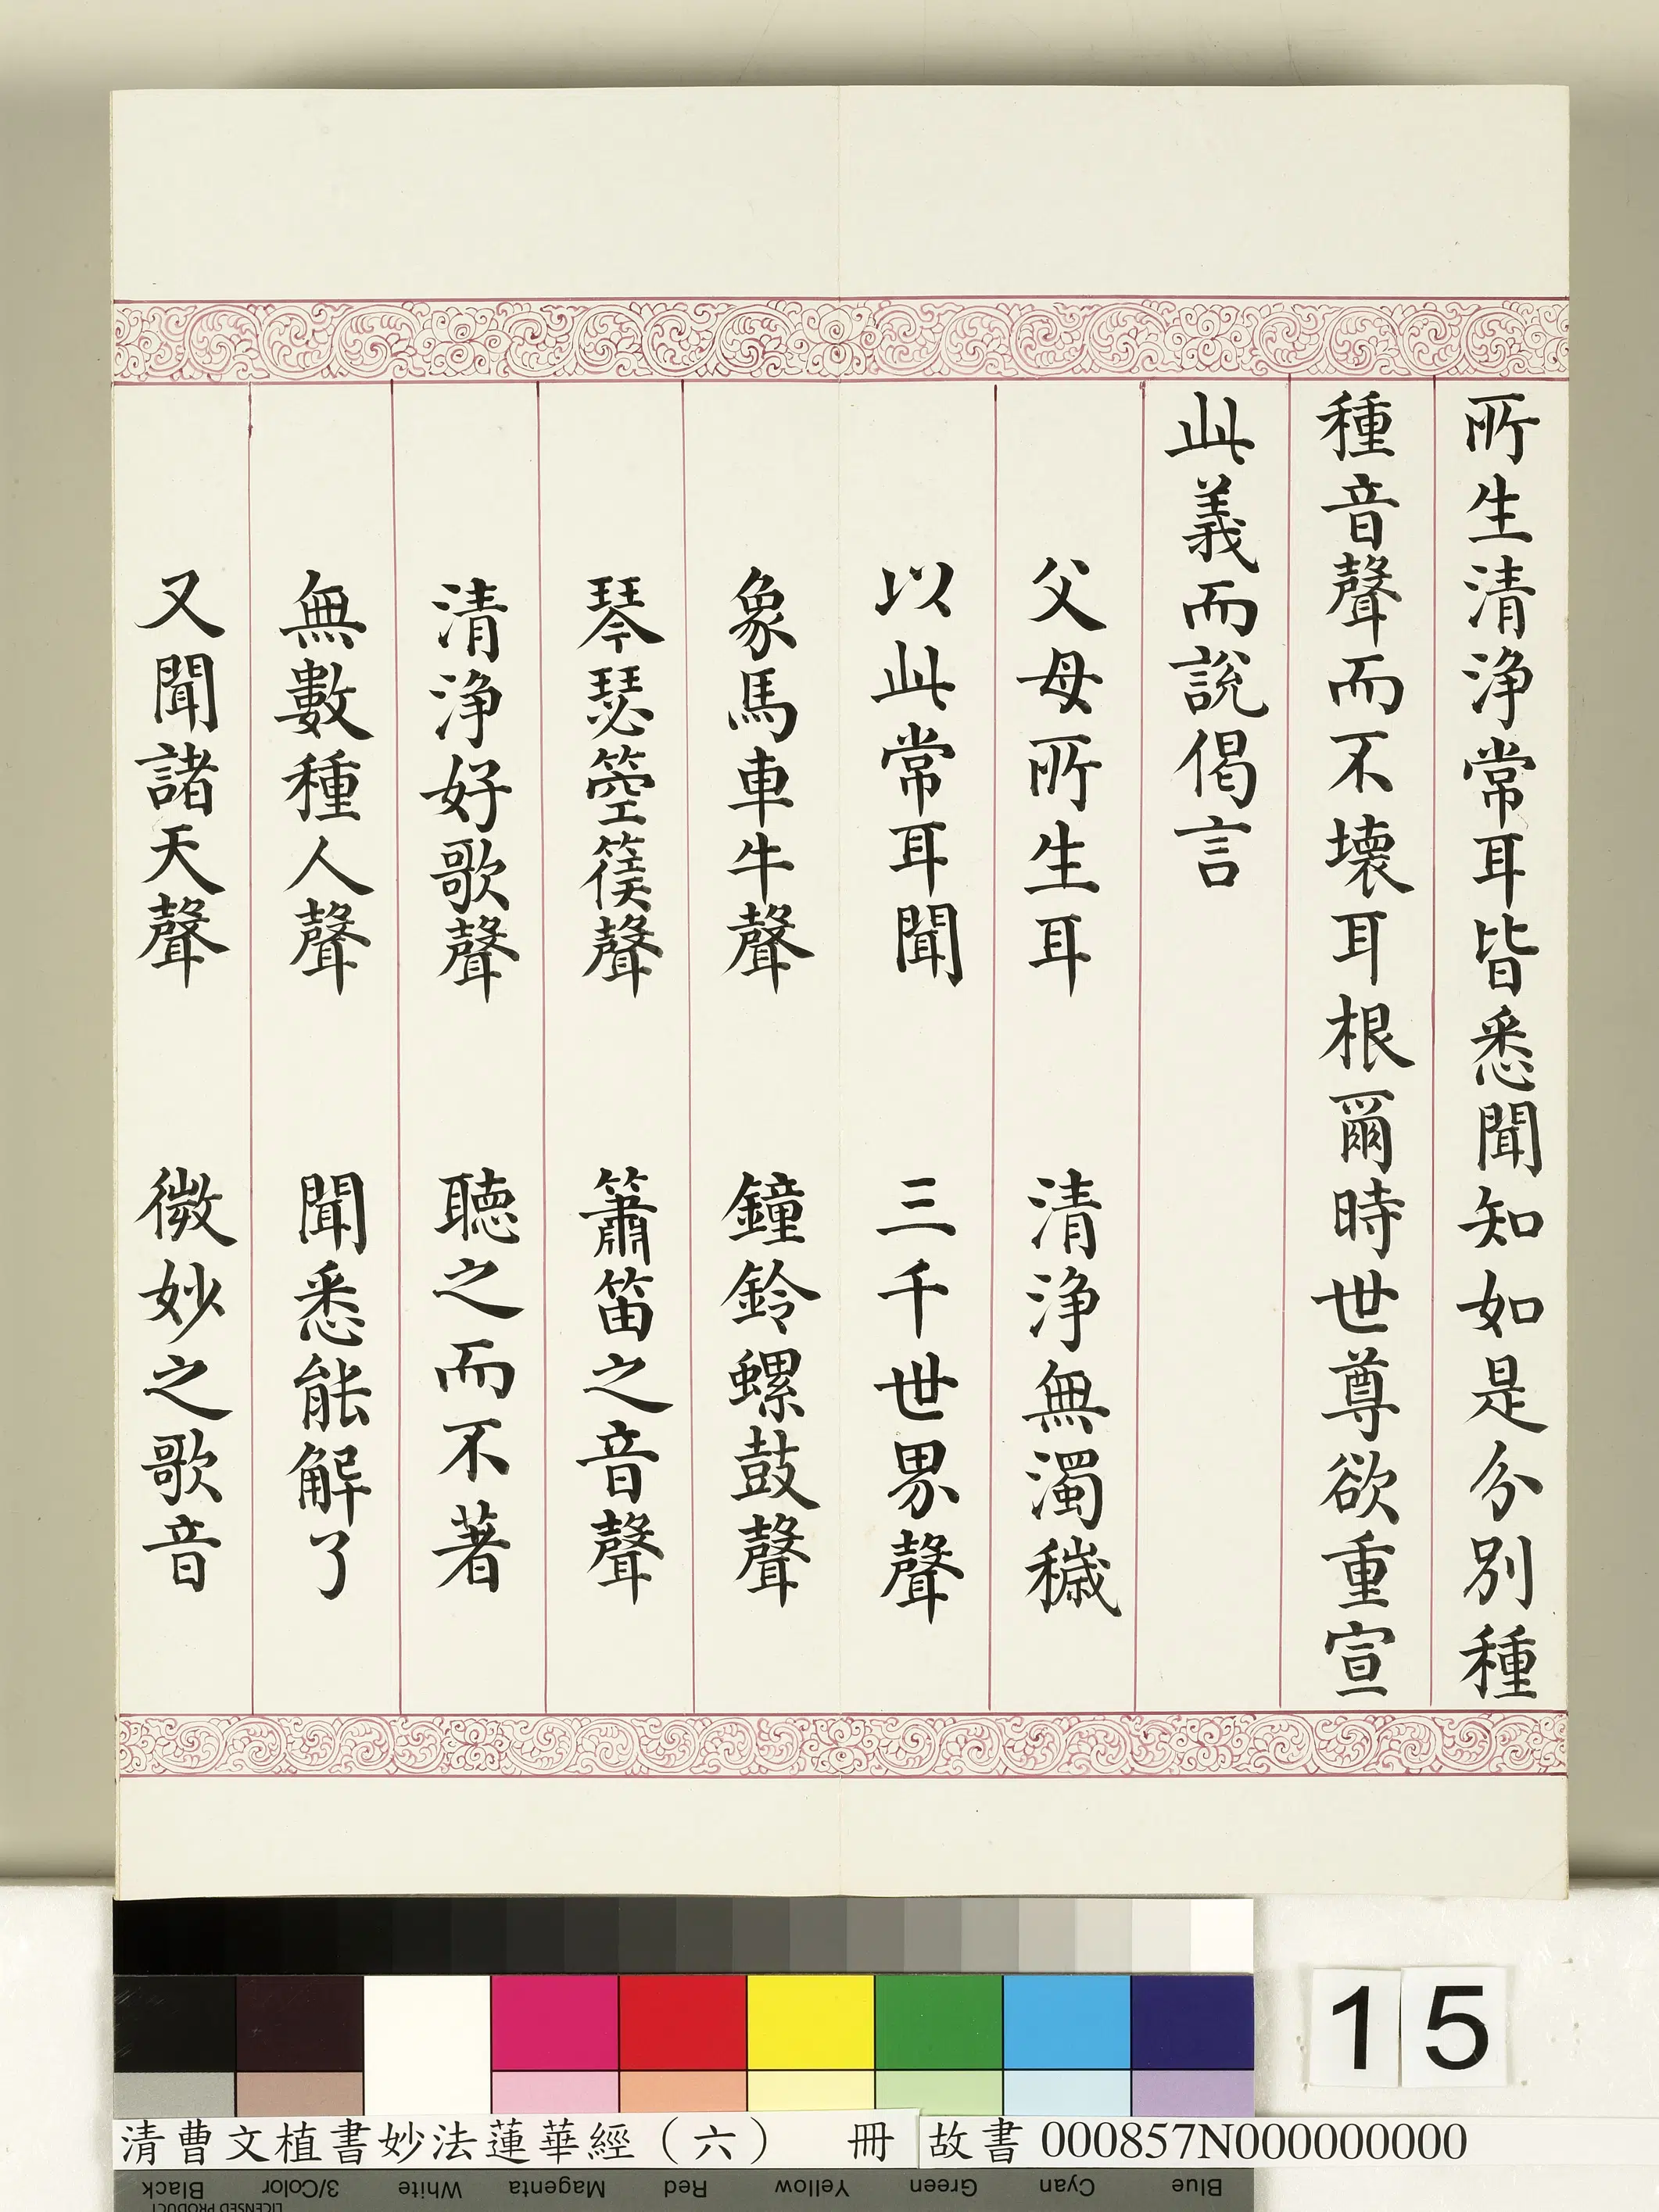 所生清淨常耳皆悉聞知如是分別種
種音聲而不壞耳根爾時世尊欲重宣
此義而說偈言
父母所生耳 清淨無濁穢
以此常耳聞 三千世界聲
象馬車牛聲 鐘鈴螺鼓聲
琴瑟箜篌聲 簫笛之音聲
清淨好歌聲 聽之而不著
無數種人聲 聞悉能解了
又聞諸天聲 微妙之歌音
15
清曹文植書妙法蓮華經（六） 冊 故書 000857N000000000
Black 3/Color White Magenta Red Yellow Green Cyan Blue
LICENSED PRODUCT